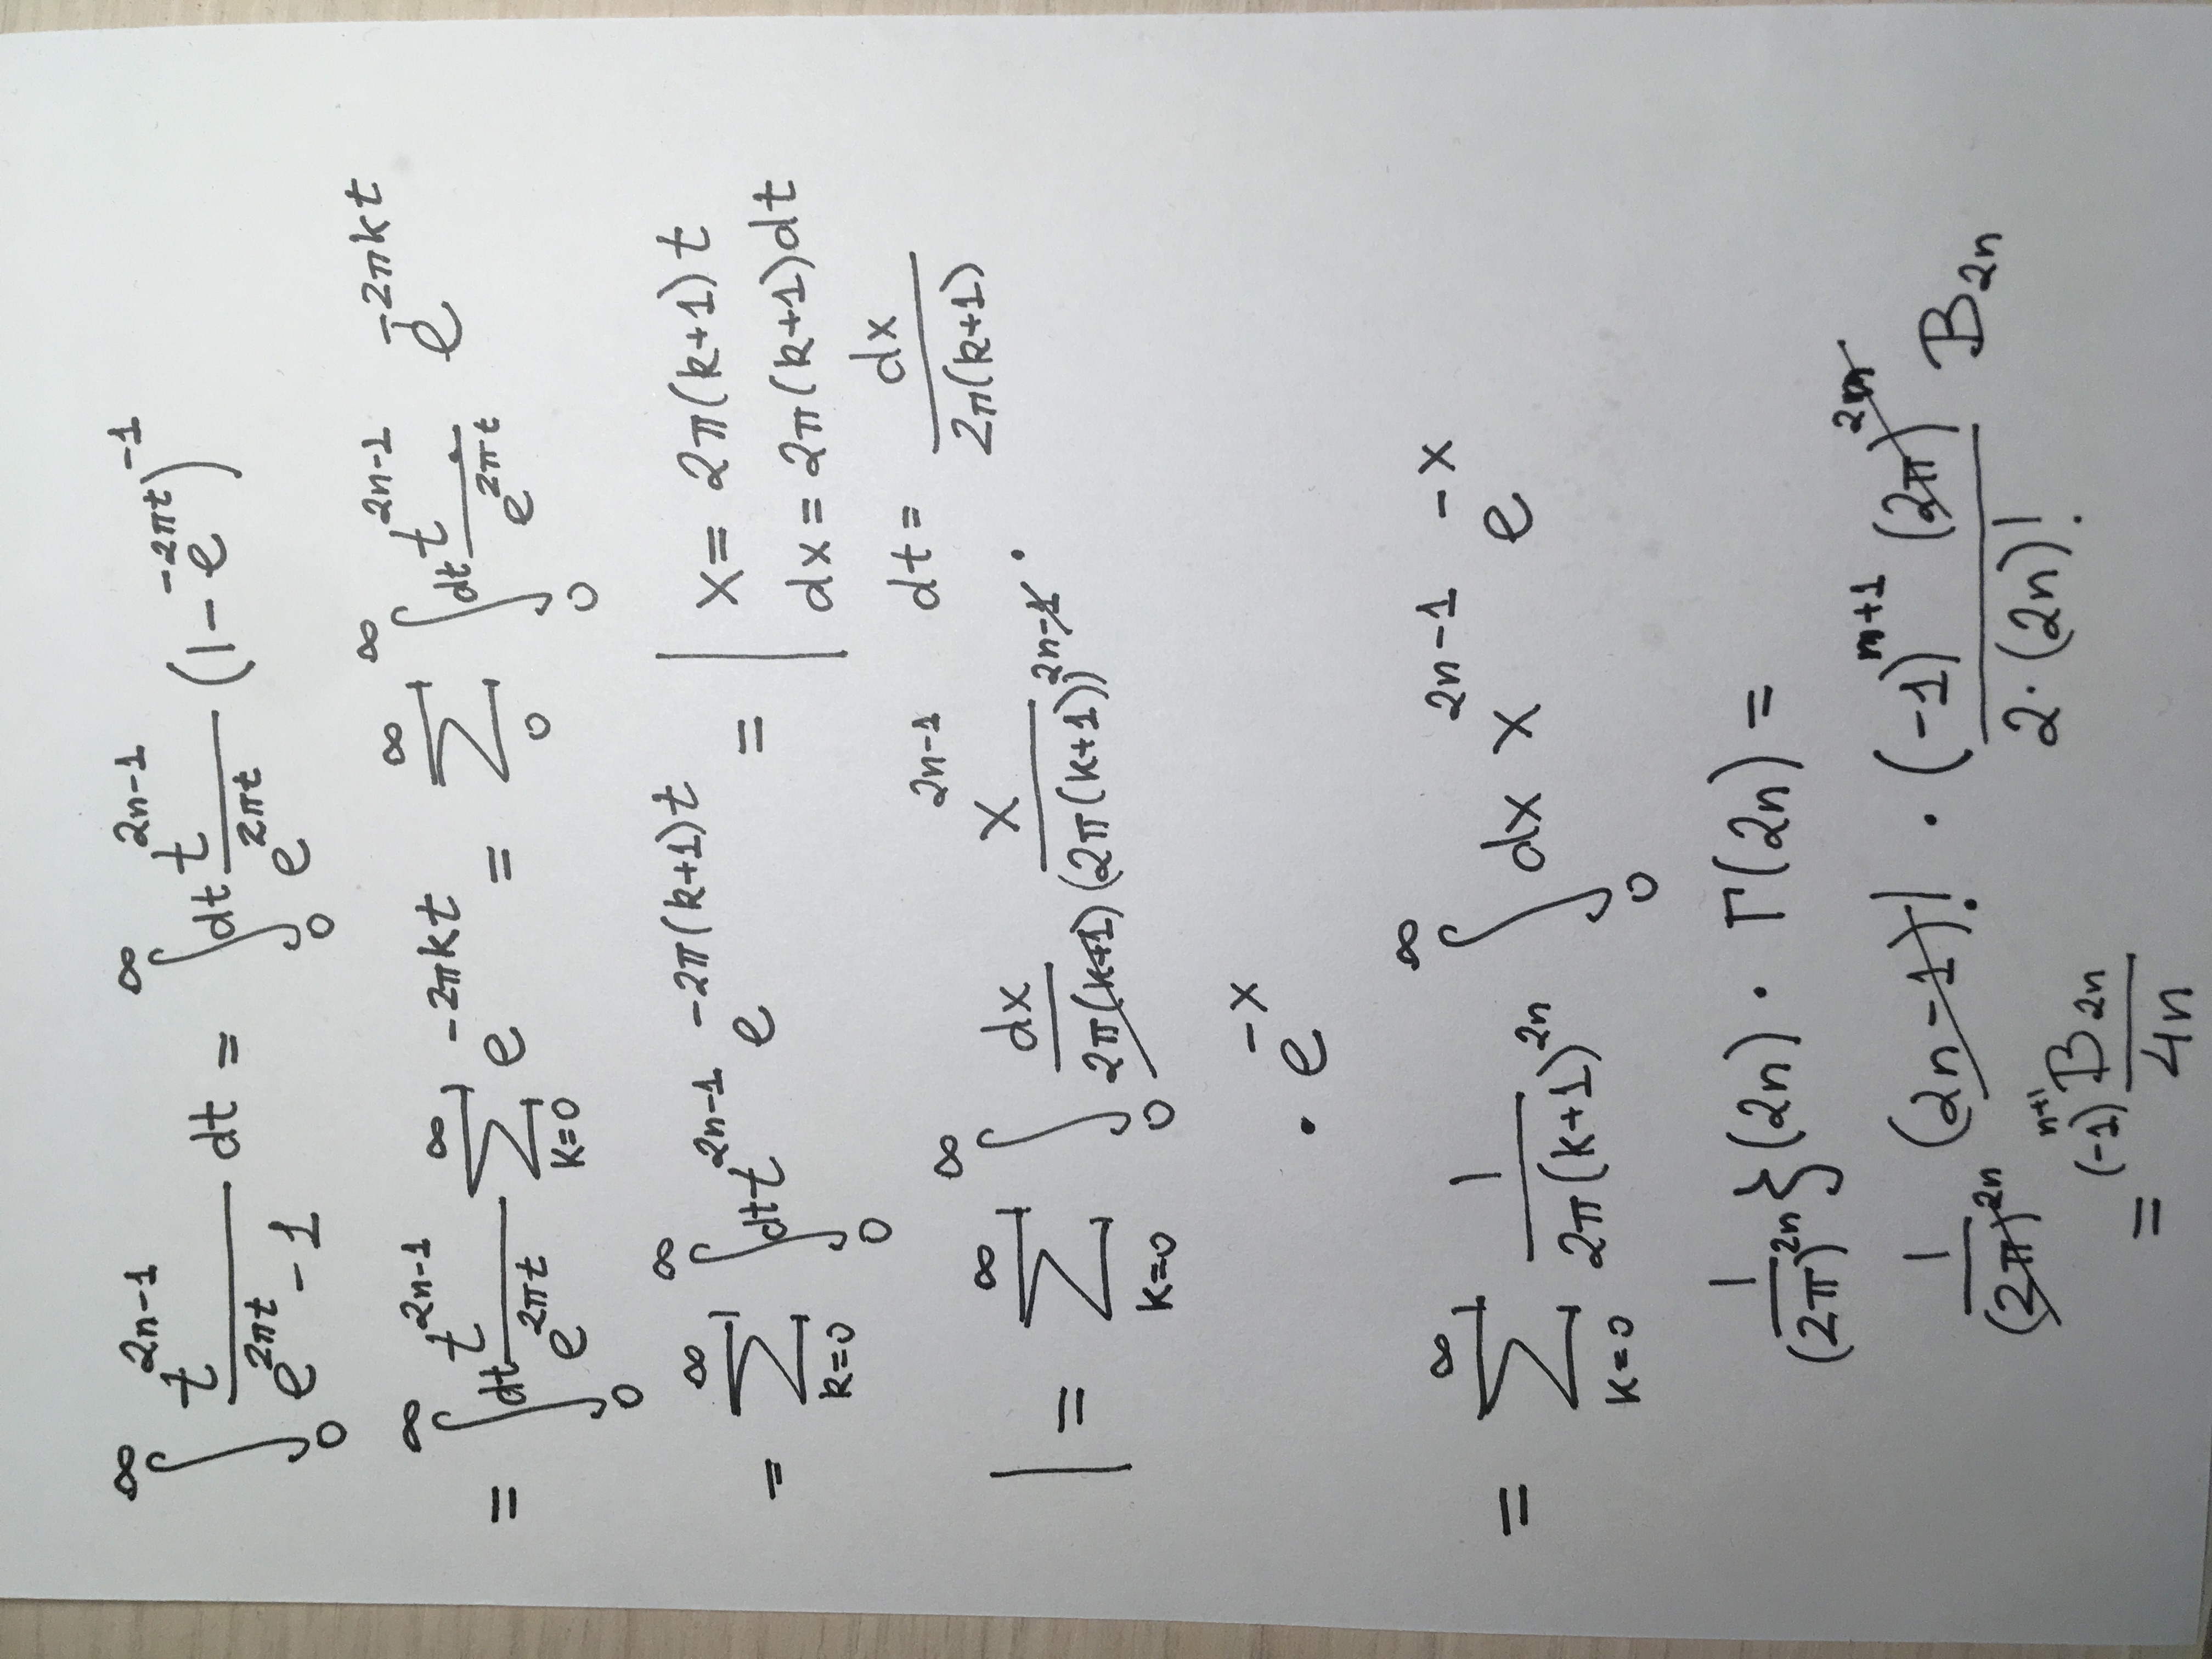 ∫_0^∞ t^{2n-1}/(e^{2πt} - 1) dt = ∫_0^∞ dt t^{2n-1}/e^{2πt} (1 - e^{-2πt})^{-1}
= ∫_0^∞ dt t^{2n-1}/e^{2πt} ∑_{k=0}^∞ e^{-2πkt} = ∑_0^∞ ∫_0^∞ dt t^{2n-1}/e^{2πt} e^{-2πkt}
= ∑_{k=0}^∞ ∫_0^∞ dt t^{2n-1} e^{-2π(k+1)t} = | x = 2π(k+1)t
dx = 2π(k+1)dt
dt = dx/(2π(k+1))
| = ∑_{k=0}^∞ ∫_0^∞ dx/(2π(k+1)) x^{2n-1}/(2π(k+1))^{2n-1} ·
· e^{-x}
= ∑_{k=0}^∞ 1/(2π(k+1)^{2n}) ∫_0^∞ dx x^{2n-1} e^{-x}
1/(2π)^{2n} ζ(2n) · Γ(2n) =
1/(2π)^{2n} (2n-1)! · (-1)^{n+1} (2π)^{2n}/(2·(2n)!) B_{2n}
= (-1)^{n+1} B_{2n}/(4n)